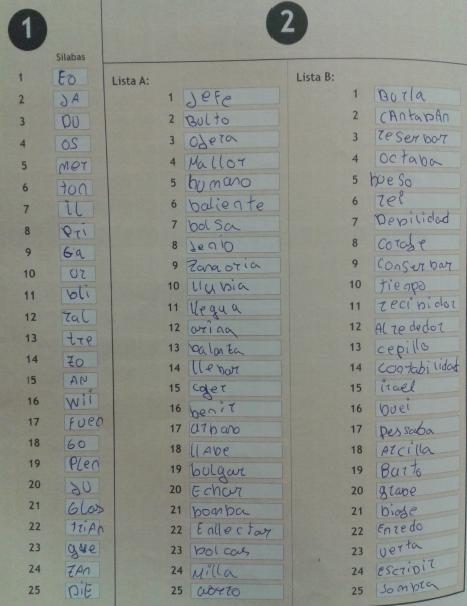 1
2
Sílabas
1 Eo
2 JA
3 DU
4 OS
5 mer
6 ton
7 il
8 Pri
9 Ga
10 UZ
11 bli
12 zal
13 tre
14 zo
15 AN
16 Wil
17 Fuen
18 Go
19 Plen
20 JU
21 Glos
22 triAn
23 gue
24 ZAn
25 DiE
Lista A:
1 Jefe
2 Bulto
3 ojera
4 Mallor
5 humano
6 baliente
7 bolsa
8 Jenio
9 Zanaoria
10 llubia
11 llegua
12 orina
13 balanza
14 llebar
15 coger
16 benir
17 urbano
18 llabe
19 bulgar
20 Echar
21 bomba
22 Enllectar
23 bolcas
24 Milla
25
Lista B:
1 Burla
2 cAntabAn
3 reserbar
4 octaba
5 hueso
6 rel
7 Debilidad
8
9 conserbar
10 tienpo
11 recibidor
12 Alrededor
13 cepillo
14 contabilidad
15 irael
16 buei
17 Pessaba
18 Arcilla
19 Barto
20 grabe
21 biaje
22 Enredo
23 uerta
24 escribir
25 Sombra